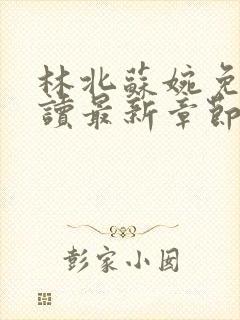 林北蘇婉免
讀最新章節
彭家小囡